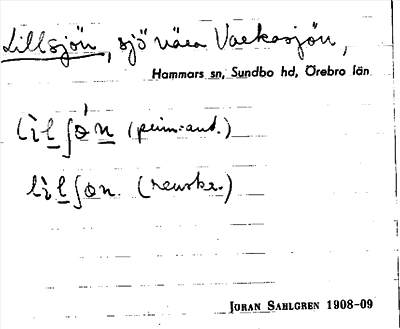 Lillsjön, sjö nära Vaekasjön,
Hammars sn, Sundbo hd, Örebro län
lìlʃón (prim.-ant.)
lìlʃon. (renskr.)
JÖRAN SAHLGREN 1908-09